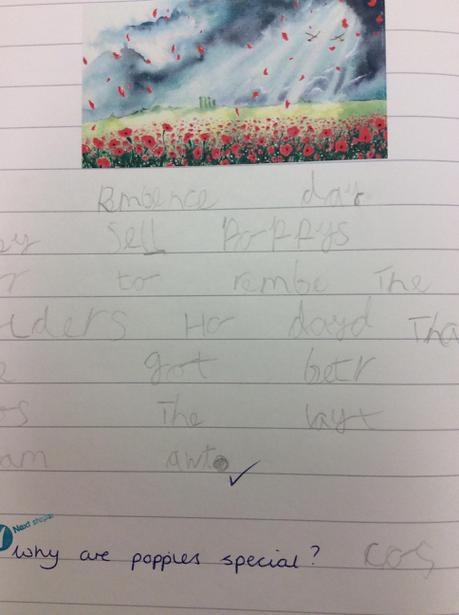 Rmbence day
ey sell Poppys
r to rembe The
lders Ho dayd Tha
e got betr
os The layt
am awt.
Next steps
why are poppies special? cos